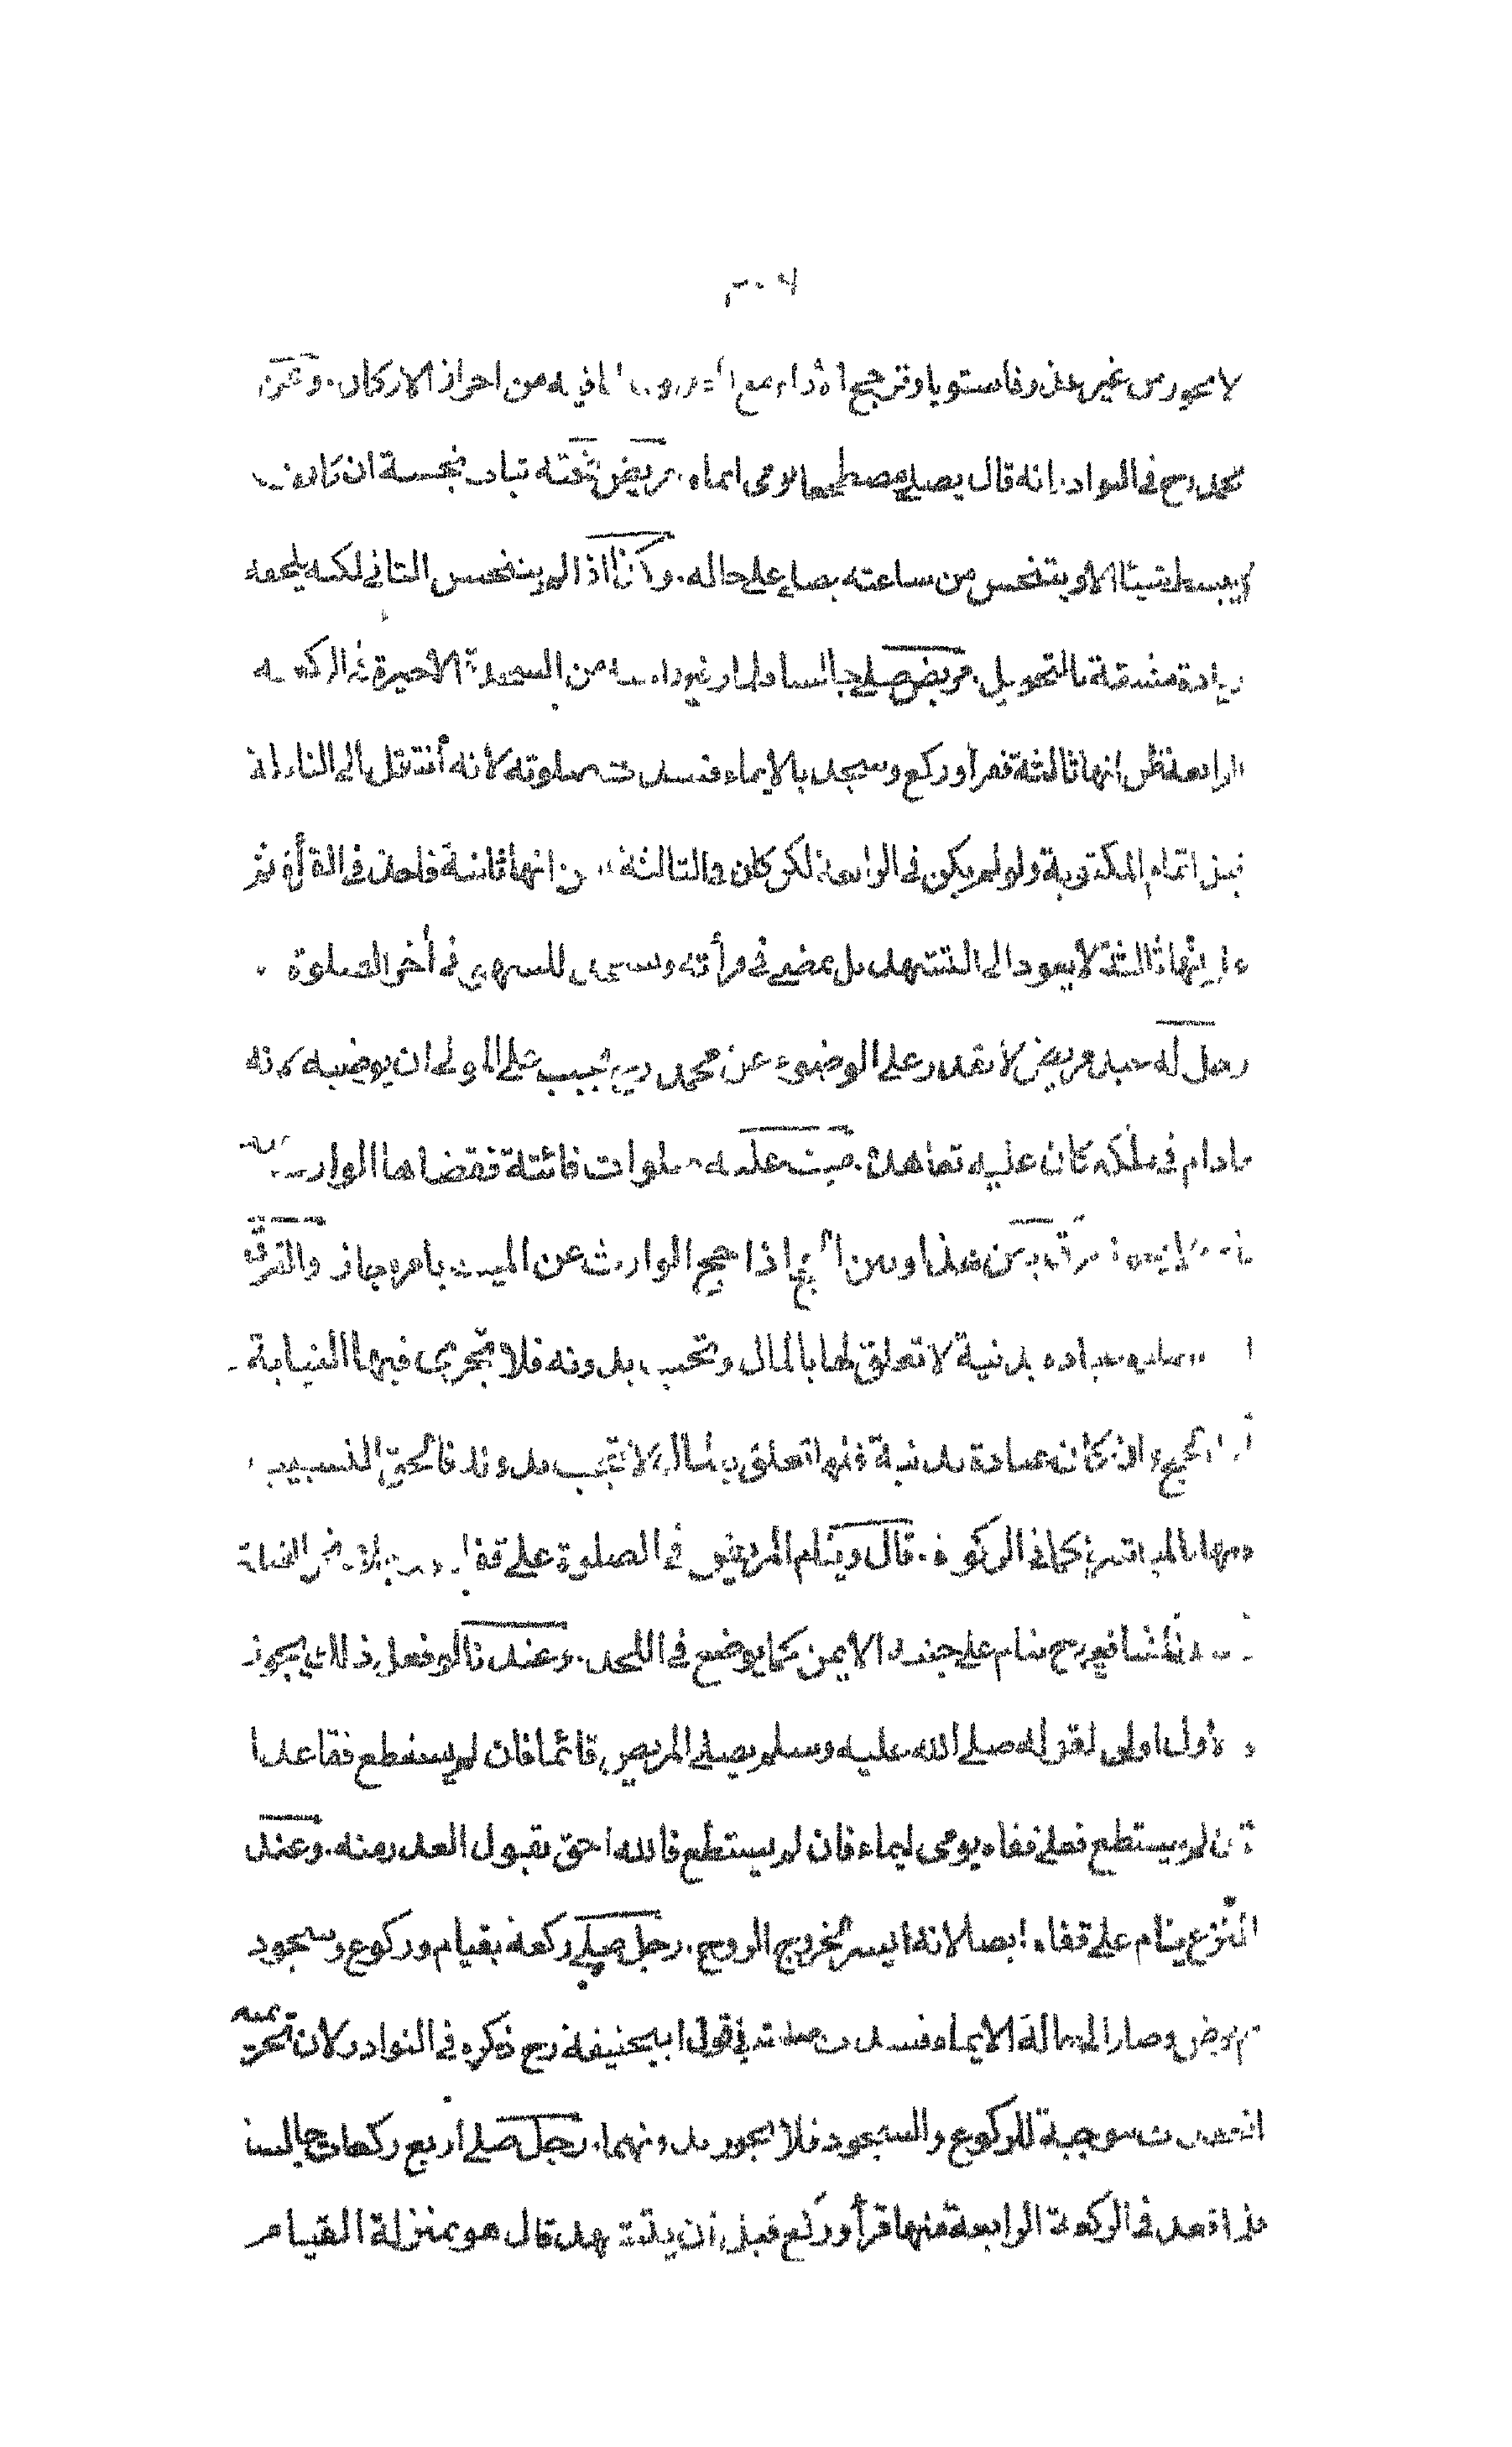 لا يجوز من غير عذر فاستويا وترجح الاداء مع لما فيه من احراز الاركان. وعن
محمد رح في النوادر انه قال يصلي مضطجعا يومى ايماء. مريض تحته ثياب نجسة ان كان
لا يبسط شيئا الا ويتنجس من ساعته يصلي على حاله. وكذا اذا لم يتنجس الثاني لكنه يلحقه
زيادة مشقة بالتحويل. مريض صلى جالسا فلما رفع راسه من السجدة الاخيرة في الركعة
الرابعة ظن انها ثالثة فقرأ وركع وسجد بالايماء فسدت صلوته لانه انتقل الى النافلة
قبل اتمام المكتوبة ولو لم يكن في الرابعة لكن كان في الثالثة ظن انها ثانية فاخذ في القرأة ثم
علم انها ثالثة لا يعود الى التشهد بل يمضي في قرأته ويسجد للسهو في أخر الصلوة .
رجل له عبد مريض لا يقدر على الوضوء عن محمد رح يجب على المولى ان يوضيه لانه
مادام في ملكه كان عليه تعاهده. ميت عليه صلوات فائتة فقضاها الوارث
فرق بين هذا وبين الحج اذا حج الوارث عن الميت بامره جاز والفرق
عبادة بدنية لا تعلق لها بالمال وتجب بدونه فلا تجرى فيها النيابة
الحج وان كان عبادة بدنية فلها تعلق بالمال لا تجب بدونه فالحق التسبيب
فيها بالمباشرة كما في الزكوة. قال وينام المريض في الصلوة على قفاه القبلة
وقال الشافعي رح ينام على جنبه الايمن كما يوضع في اللحد. وعندنا لو فعل ذلك يجوز
والاول اولى لقوله صلى الله عليه وسلم يصلي المريض قائما فان لم يستطع فقاعدا
فان لم يستطع فعلى قفاه يومى ايماء فان لم يستطع فالله احق بقبول العذر منه. وعند
النزع ينام على قفاه ايضا لانه ايسر لخروج الروح. رجل صلى ركعة بقيام وركوع وسجود
ثم مرض وصار الى حالة الايماء فسدت صلوته في قول ابيحنيفة رح ذكره في النوادر لان تحريمته
انعقدت موجبة للركوع والسجود فلا يجوز بدونهما. رجل صلى أربع ركعات جالسا
فلما قعد في الركعة الرابعة منها قرأ وركع قبل أن يتشهد قال هو بمنزلة القيام